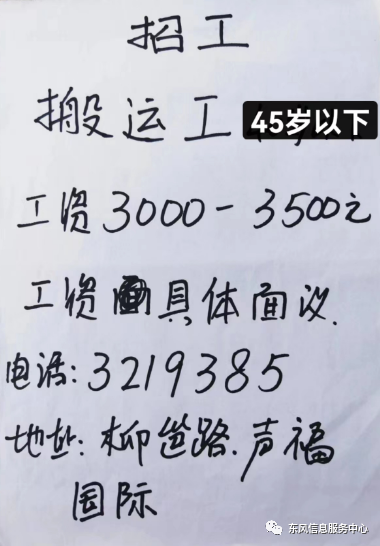 招工
搬运工 45岁以下
工资3000-3500元
工资具体面议.
电话:3219385
地址:柳邕路.声福
国际
东风信息服务中心